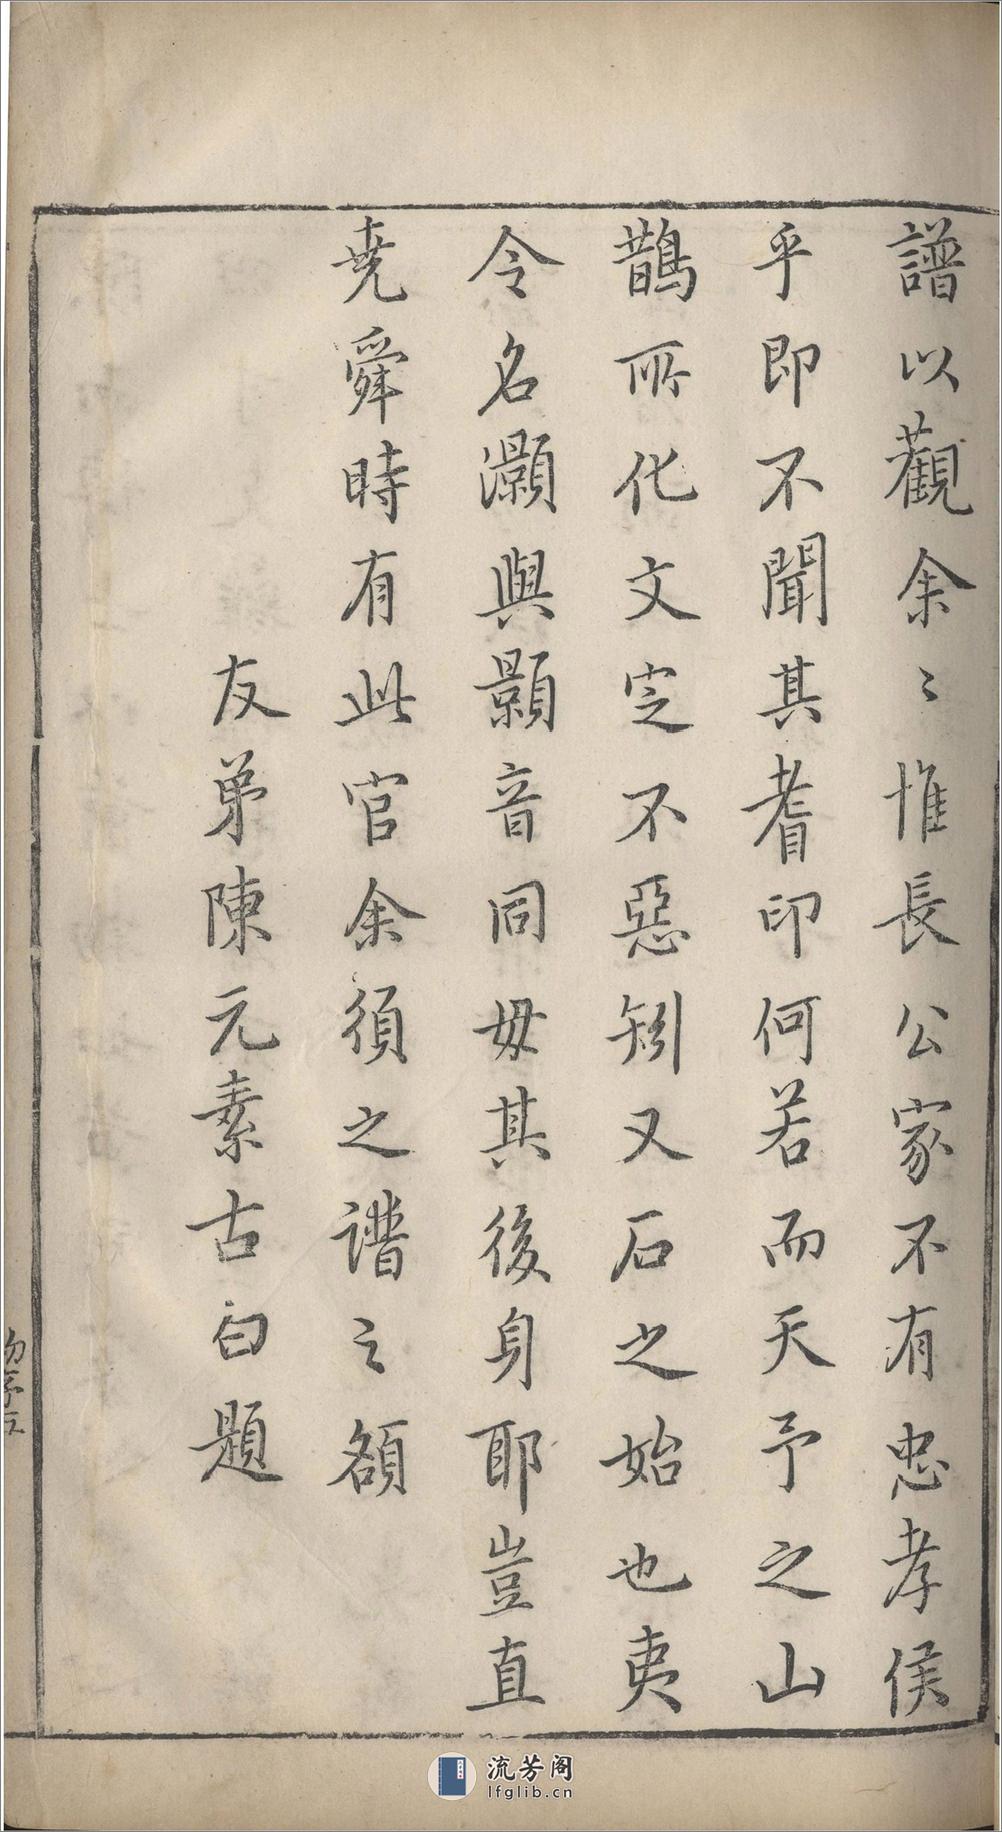 譜以觀余〻惟長公家不有忠孝侯
乎即不聞其耆印何若而天予之山
鵲所化文定不惡矧又石之始也夷
令名灝與顥音同毋其後身耶豈直
堯舜時有此官余須之譜之額
友弟陳元素古白題
流芳阁
lfglib.cn